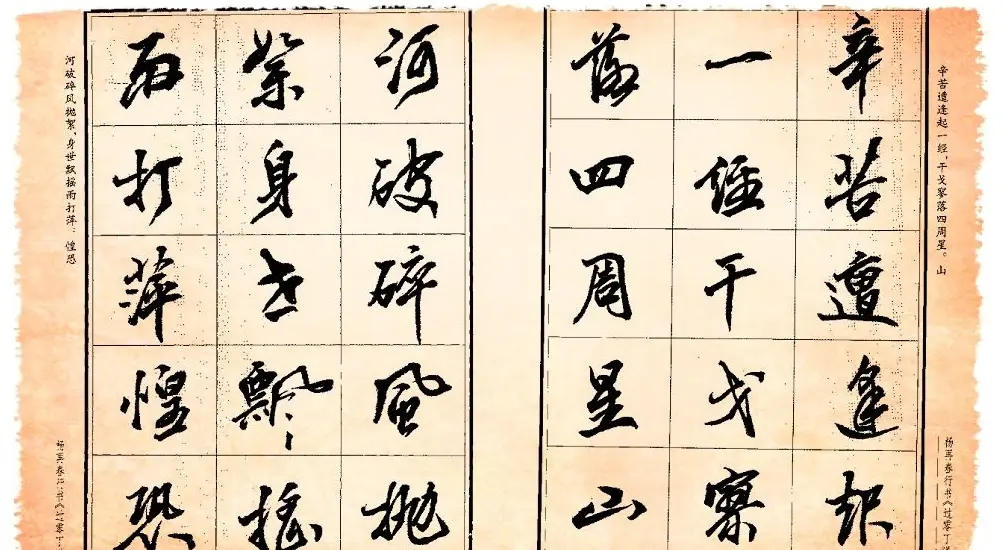 辛苦遭逢起一经，干戈寥落四周星。山
杨再春行书《过零丁洋
辛苦遭逢起
一經干戈寥
落四周星山
河破碎風拋
絮身世飄搖
雨打萍惶恐
河破碎风抛絮，身世飘摇雨打萍。惶恐
杨再春行书《过零丁